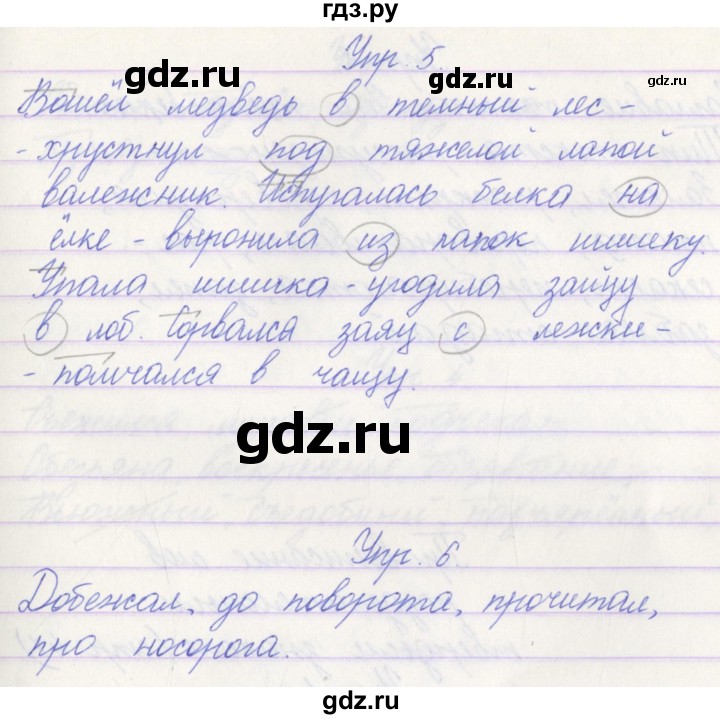 гдз.ру
Упр. 5.
gdz.ru gdz.ru gdz.ru
Вошёл медведь в темный лес -
- хрустнул под тяжелой лапой
валежник. Испугалась белка на
ёлке - выронила из лапок шишку.
Упала шишка - угодила зайцу
в лоб. Сорвался заяц с лежки -
- помчался в чащу.
gdz.ru
Упр. 6
Добежал, до поворота, прочитал,
про носорога.
gdz.ru